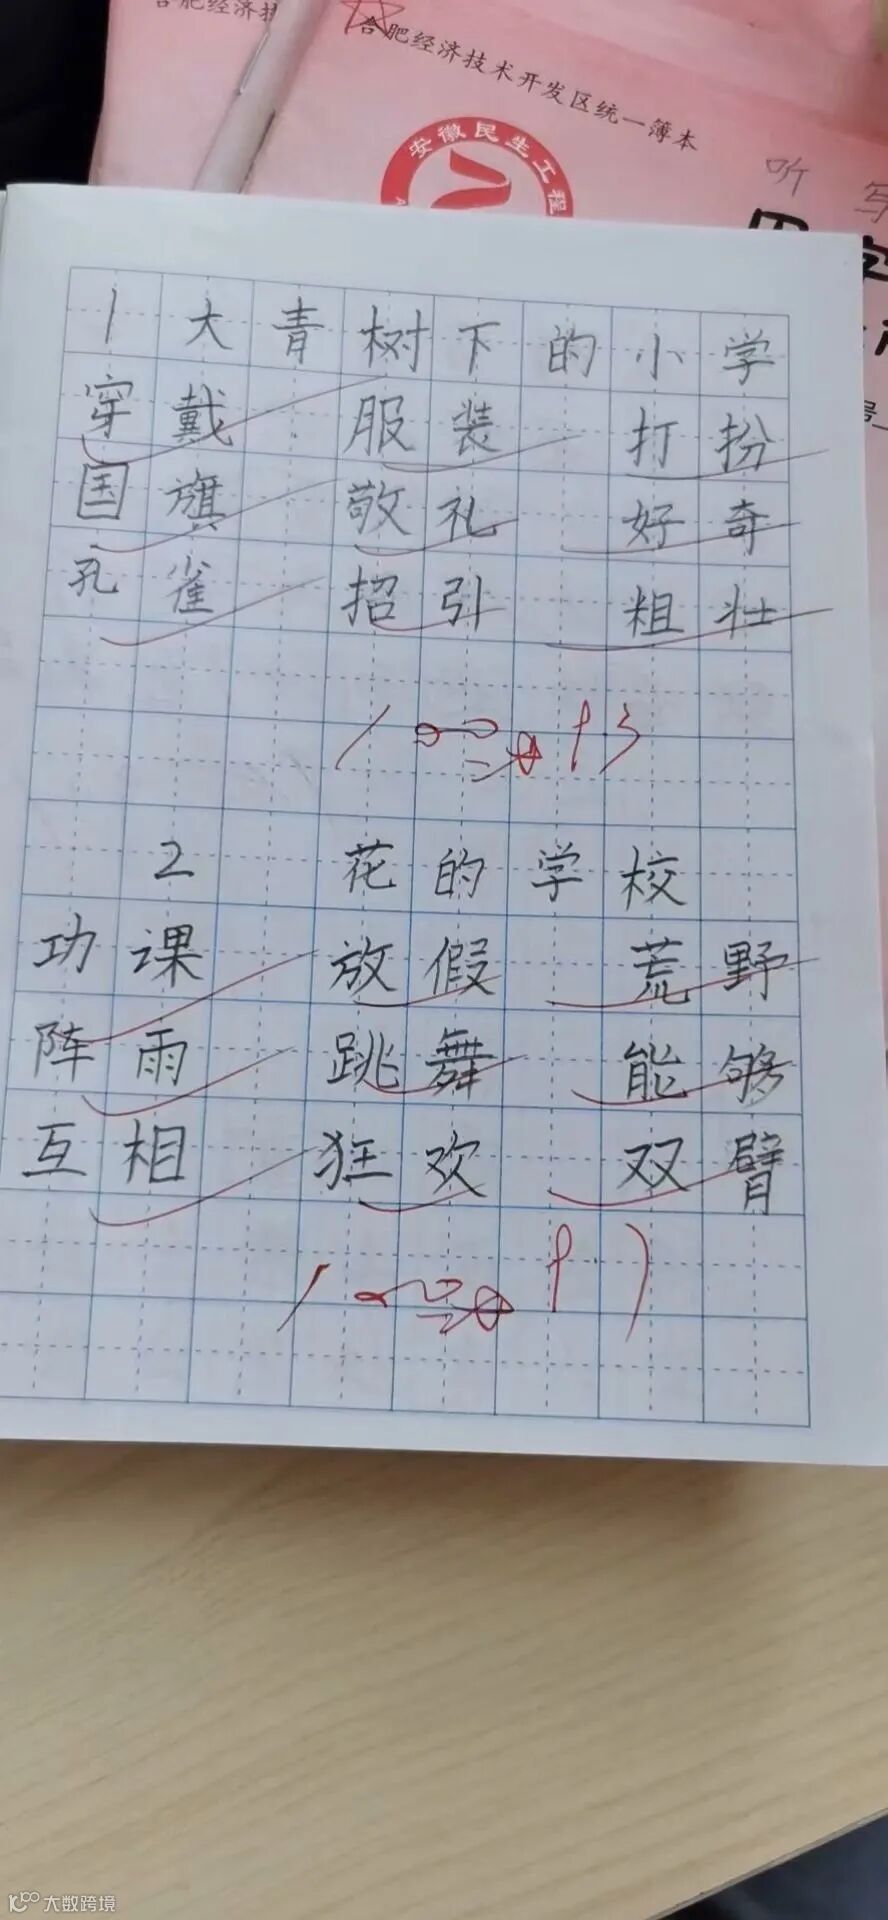 合肥经济技
合肥经济技术开发区统一簿本
安徽民生工程
听写
1大青树下的小学
穿戴 服装 打扮
国旗 敬礼 好奇
孔雀 招引 粗壮
100
2 花的学校
功课 放假 荒野
阵雨 跳舞 能够
互相 狂欢 双臂
100
大数跨境